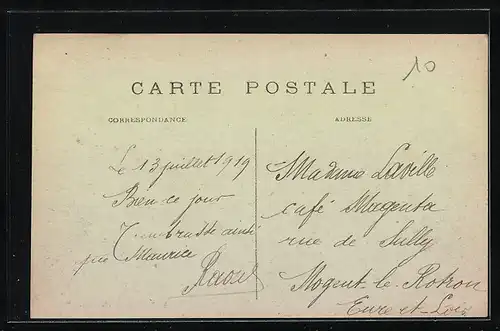 10
CARTE POSTALE
CORRESPONDANCE
ADRESSE
Le 13 juillet 1919
Bien ce jour
ainsi
que Maurice
Raoul
Madame Laville
café Magenta
rue de Sully
Nogent-le-Rotrou
Eure-et-Loir